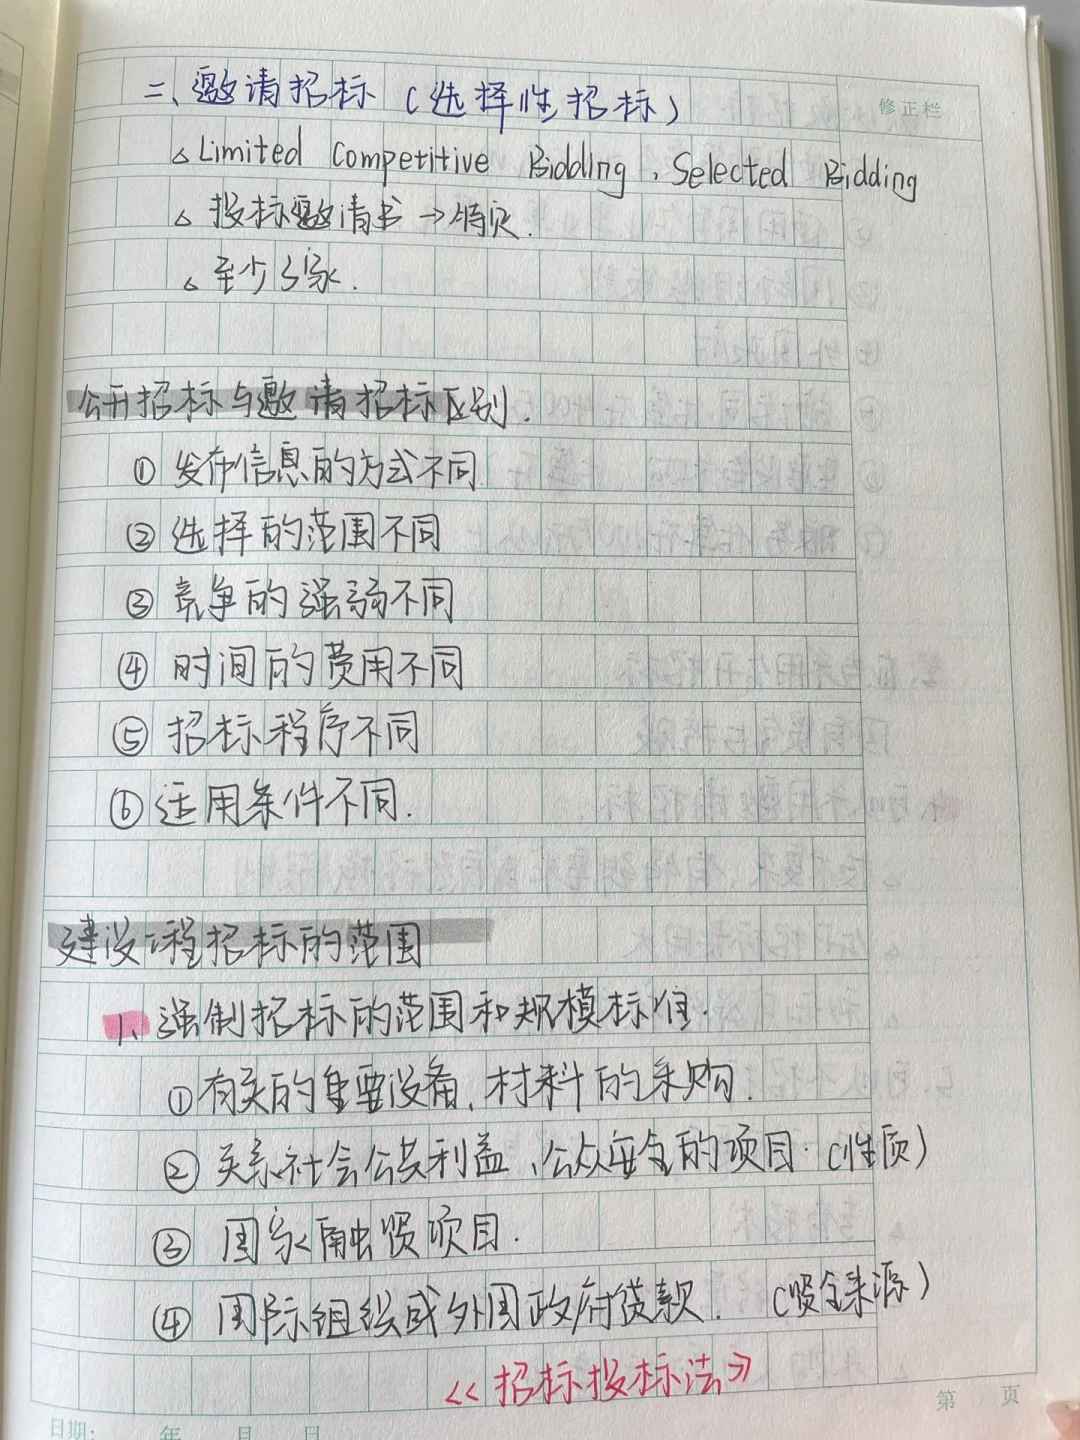 修正栏
二、邀请招标（选择性招标）
△ Limited Competitive Bidding、Selected Bidding
△ 投标邀请书→特定.
△ 至少3家.
公开招标与邀请招标区别.
① 发布信息的方式不同
② 选择的范围不同
③ 竞争的强弱不同
④ 时间的费用不同
⑤ 招标程序不同
⑥ 适用条件不同.
建设工程招标的范围
1、强制招标的范围和规模标准.
① 有关的重要设备、材料的采购.
② 关系社会公共利益、公众安全的项目.（性质）
③ 国家融资项目.
④ 国际组织或外国政府贷款.（资金来源）
《招标投标法》
第 页
日期: 年 月 日